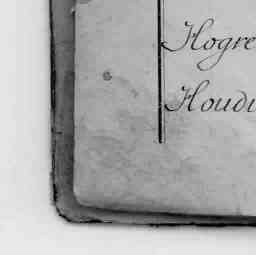 Hogre
Houdi